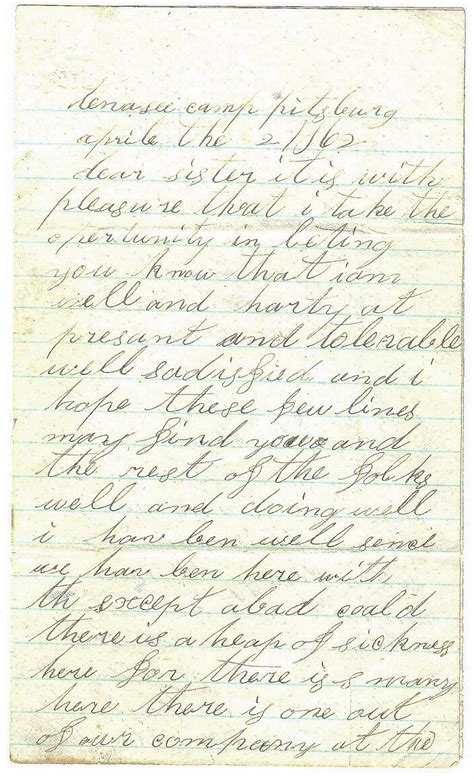 tenasee camp pitsburg
aprile the 2 1862
dear sister it is with
pleasure that i take the
opertunity in leting
you know that iam
well and harty at
presant and tolerable
well sadisfied and i
hope these few lines
may find you and
the rest of the folks
well and doing well
i hav ben well sence
we hav ben here with
th except abad coald
there is a heap of sickness
here for there is many
here there is one out
of our company at the